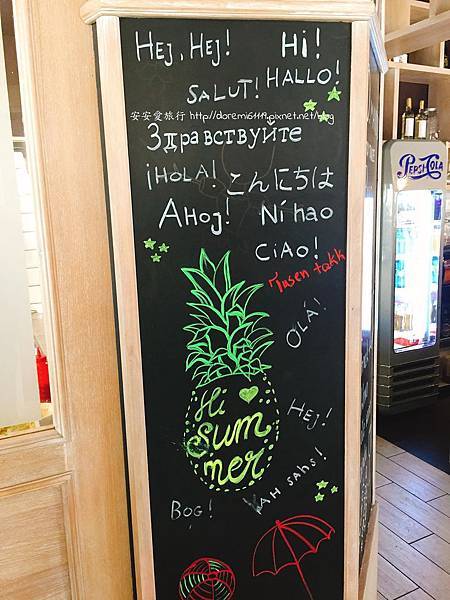 HEJ, HEJ!
Hi!
SALUT!
HALLO!
安安愛旅行 http://doremi6111.pixnet.net/blog
Здравствуйте
¡HOLA!
こんにちは
AHOJ!
Ní hao
CiAO!
Tusen takk
OLÁ!
Hi
Sum
mer
HEJ!
YAH SAhS!
BOG!
PEPSI-COLA